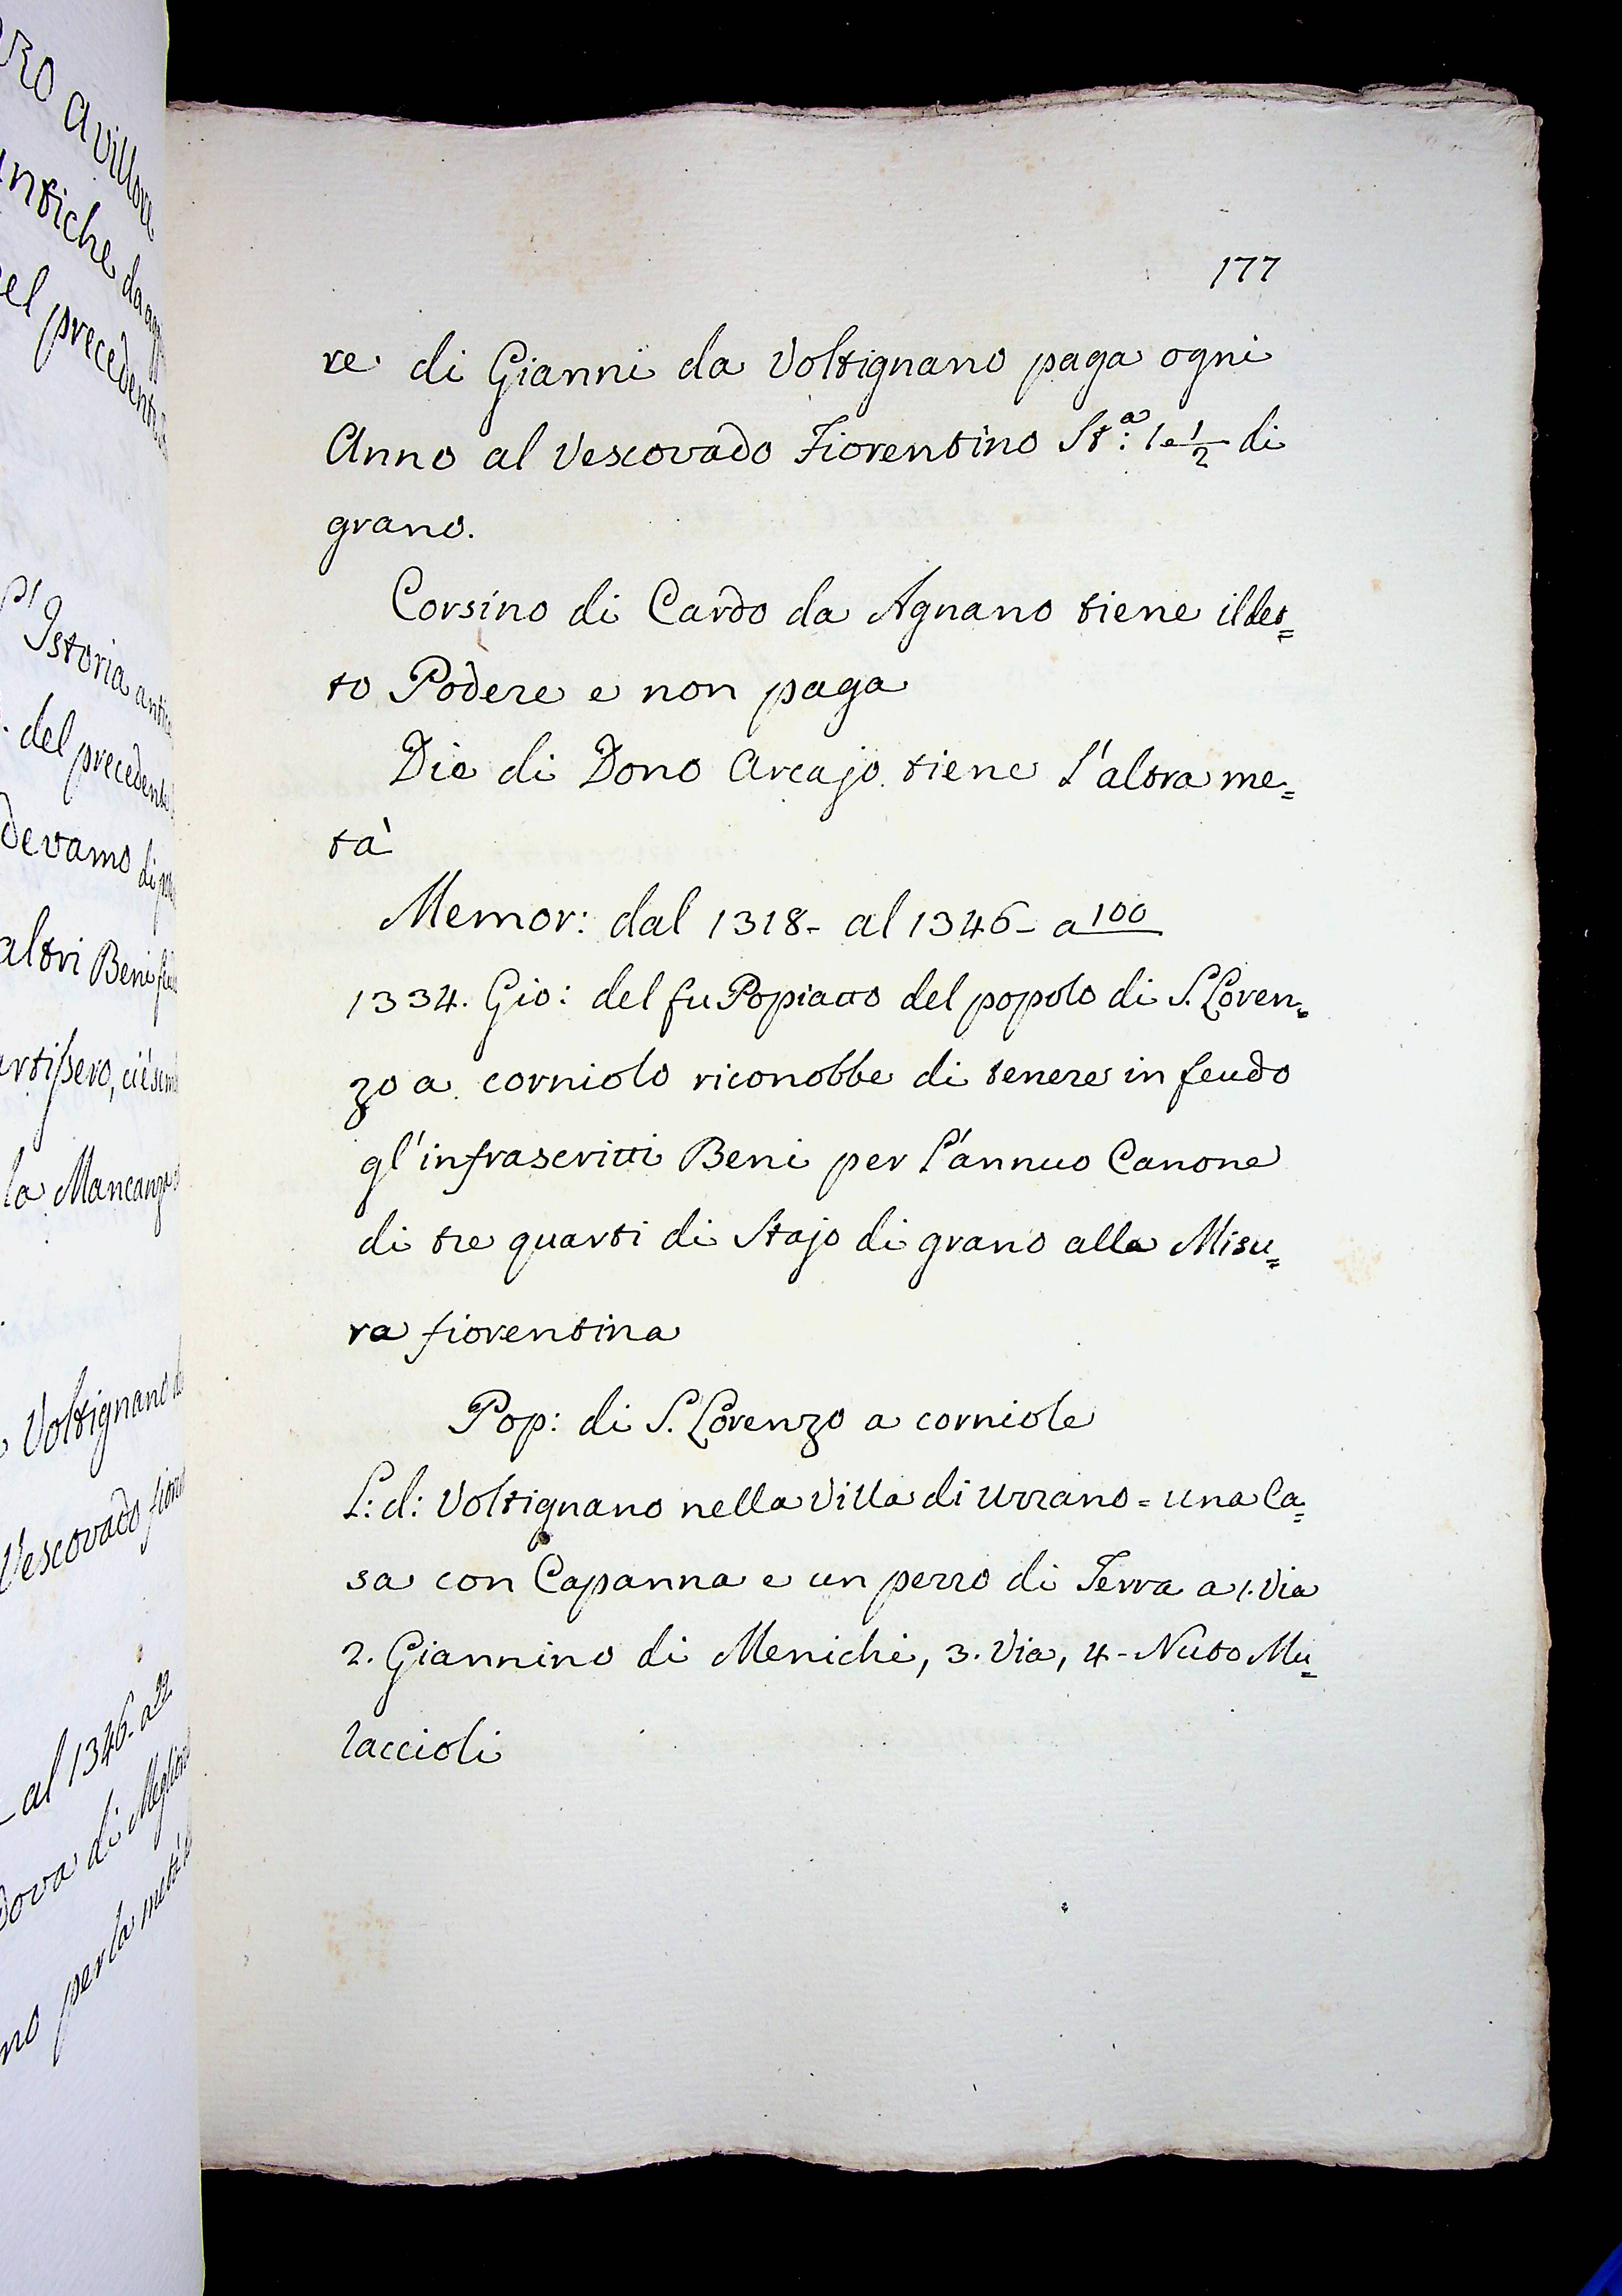 177
re di Gianni da Voltignano paga ogni
Anno al Vescovado Fiorentino St.ª: 1 e 1/2 di
grano.
Corsino di Cardo da Agnano tiene il det=
to Podere e non paga
Dio di Dono Arcajo tiene l'altra me=
tà
Memor: dal 1318- al 1346- a 100
1334. Gio: del fu Popiatto del popolo di S. Loren=
zo a corniolo riconobbe di tenere in feudo
gl'infrascritti Beni per l'annuo Canone
di tre quarti di Stajo di grano alla Misu=
ra fiorentina
Pop: di S. Lorenzo a corniole
L: d: Voltignano nella Villa di Uzzano = una Ca=
sa con Capanna e un pezzo di Terra a 1. Via
2. Giannino di Menichi, 3. Via, 4- Nuto Mu=
laccioli
antiche
el precedente
Istoria
del precedente
devamo
altri Beni
la Mancanza
Voltignano
Vescovado
al 1346- a 99
di
no per la metà